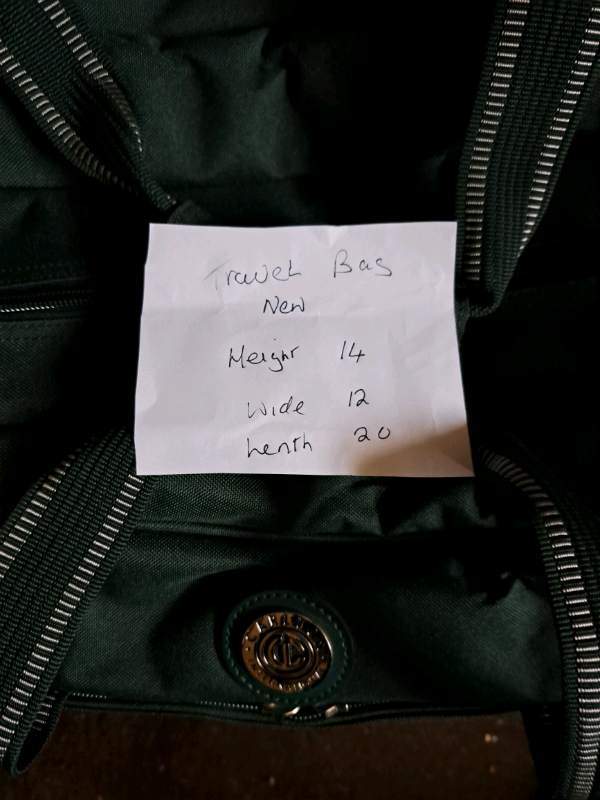 Travel Bag
New
Height 14
Wide 12
Lenth 20